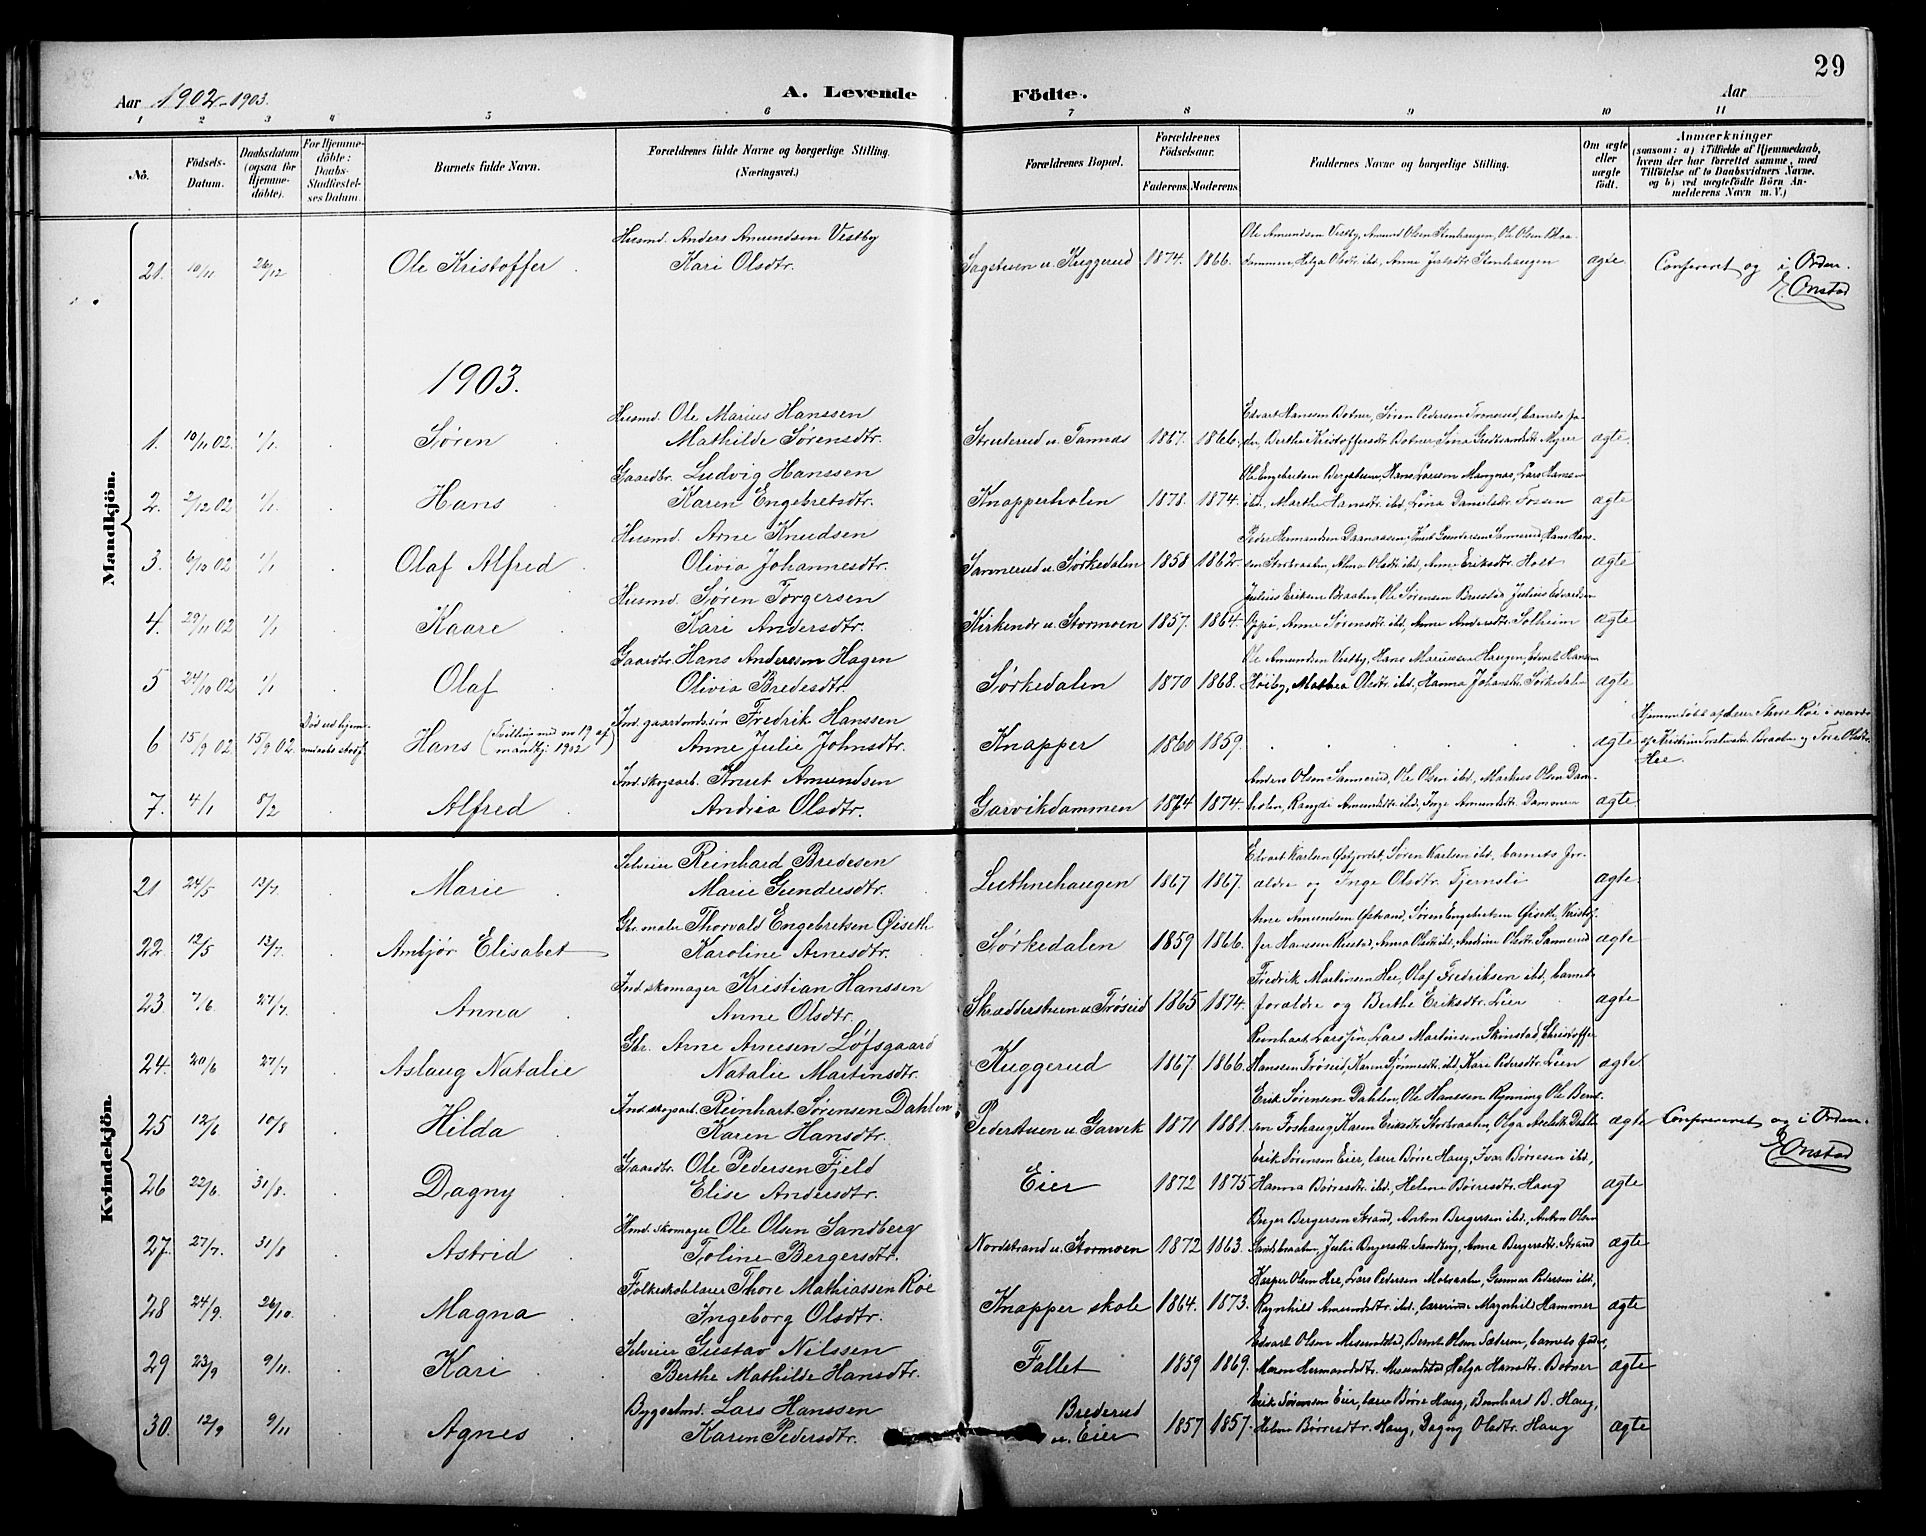 29
Aar 1902-1903.
A. Levende Födte.
Aar
1 2 3 4 5 6 7 8 9 10 11
No.
Födsels-Datum.
Daabsdatum (ogsaa för Hjemme-döbte).
For Hjemme-döbte: Daabs-Stadfæstel-ses Datum.
Barnets fulde Navn.
Forældrenes fulde Navne og borgerlige Stilling. (Næringsvei.)
Forældrenes Bopæl.
Forældrenes Födselsaar.
Faderens. Moderens.
Faddernes Navne og borgerlige Stilling.
Om ægte eller uægte födt.
Anmærkninger (saasom: a) i Tilfælde af Hjemmedaab, hvem der har forrettet samme, med Tilföielse af to Daabsvidners Navne, og b) ved uægtefödte Börn An-melderens Navn m. V.)
Mandkjön.
Husmd. Anders Amundsen Vestby
Ole Amundsen Vestby, Amund Olsen Stenhaugen, Ole Olsen
21. 10/11 26/12 Ole Kristoffer Kari Olsdtr. Sagstuen u. Kuggerud 1874. 1866. Helga Olsdtr. ibd., Anne Stenhaugen ægte Confereret og i Orden.
E. Onstad
1903.
Husmd. Ole Marius Hanssen
Edvart Hanssen Botner, Søren Pedersen barnets fa-
1. 10/11 02. 1/1. Søren Mathilde Sørensdtr. Struterud u. Tannæs 1867. 1866. der, Berthe Kristoffersdtr. Botner Myrer ægte.
Gaardbr. Ludvig Hanssen
Ole Engebretsen Bergstuen, Hans Larssen Mangnæs, Lars Hansen
2. 2/12 02 1/1. Hans Karen Engebretsdtr. Knapperholen 1878. 1874. ibd., Marthe Hansdtr. ibd., Lina Danielsdtr. Fossen ægte
Husmd. Arne Knudsen
Peder Hermandsen Knut Gundersen Sannerud, Hans Hans-
3. 6/10 02 1/1 Olaf Alfred Olivia Johannesdtr. Sannerud u. Sørkedalen 1858 1862. sen Storbraaten, Alma Olsdtr. ibd., Anne Eriksdtr. Holt ægte
Husmd. Søren Torgersen
Julius Eriksen Braaten, Ole Sørensen Julius Edvardsen
4. 29/11 02 1/1 Kaare Kari Andersdtr. Kirkendr u. Stormoen 1857. 1864. Anne Sørensdtr. ibd., Anne Andersdtr. Solheim ægte
Gaardbr. Hans Anderssen Hagen
Ole Amundsen Vestby, Hans Mariussen Haugen, Edvart Hansen
5 24/10 02 1/1 Olaf Olivia Bredesdtr. Sørkedalen 1870 1868. Høiby, Mathea Olsdtr. ibd., Hanna Johansdtr. Sørkedalen ægte
Ind. gaardmdssøn Fredrik Hanssen
Hjemmedøbt af lærer Thore Røe i overvær
6 15/9 02 15/9 02. Død ud. hjem- Hans (Tvilling med en 19 af mandkj. 1902) Anne Julie Johnsdtr. Knapper 1860 1859. ægte af Kristine Braaten og Tore Olsdtr. Hee.
Ind. skogsarb. Knut Amundsen
Anders Olsen Sannerud, Ole Olsen ibd., Markus Olsen Dam-
7. 4/1 8/2 Alfred Andrea Olsdtr. Garvikdammen 1874 1874. holen, Rangdi Amundsdtr. ibd., Inge Amundsdtr. Dammen ægte
Kvindekjön.
Selveier Reinhard Bredesen
Edvart Karlsen Søren Karlsen ibd., barnets for-
21 24/5 13/7 Marie Marie Gundersdtr. Luthnehaugen 1867 1867. ældre og Inge Olsdtr. Tjernsli ægte.
Gbr. maler Thorvald Engebretsen Gjiseth
Arne Amundsen Søren Engebretsen Kristof-
22. 12/5 13/7. Ambjør Elisabet Karoline Arnesdtr. Sørkedalen 1859 1866. fer Hanssen Anna Olsdtr. ibd., Andrine Olsdtr. Sannerud ægte
Ind. skomager Kristian Hanssen
Fredrik Martinsen Hee, Olaf Fredriksen ibd., barnets
23 7/6. 27/7. Anna Anne Olsdtr. Skrædderstuen u. Trøseid 1865 1874. forældre og Berthe Eriksdtr. Lier ægte
Gbr. Arne Arnesen Løfsgaard
Reinhart Larssøn, Lars Martinsen Skinstad, Christoffer
24. 20/6 27/7 Aslaug Natalie Natalie Martinsdtr. Kuggerud 1867 1866. Hanssen Trøseid, Karen Simensdtr. ibd., Kari Pedersdtr. Lien ægte.
Ind. skogsarb. Reinhart Sørensen Dahlen
Erik Sørensen Dahlen, Ole Hanssen Rynning Ole Bernt-
25 12/6 10/8 Hilda Karen Hansdtr. Pederstuen u. Garvik 1871 1881. sen Foshaug Karen Eriksdtr. Storbraaten, Olga ægte Confereret og i Orden.
E. Onstad
Gaardbr. Ole Pedersen Fjeld
Erik Sørensen Eier, lærer Børre Haug, Ivar Børresen ibd.,
26 22/6. 31/8. Dagny Elise Andersdtr. Eier 1872 1875 Hanna Børresdtr. ibd., Helene Børresdtr. Haug ægte
Hmd. skomager Ole Olsen Sandberg
Birger Bergersen Strand, Anton Bergersen ibd., Anton Olsen
27. 27/7. 31/8 Astrid Toline Bergersdtr. Nordstrand u. Stormoen 1872 1863. Sandbraaten, Julie Birgersdtr. Sandberg, Anna Bergersdtr. Strand ægte
Folkeskolelærer Thore Mathiassen Røe
Kasper Olsen Hee, Lars Pedersen Gunnar Pedersen ibd.,
28 24/9. 26/10. Magna Ingeborg Olsdtr. Knapper skole 1864. 1873. Ragnhild Amundsdtr. ibd., lærerinde Magnhild Hammer ægte
Selveier Gustav Nilssen
Edvart Olsen Misundstad, Bernt Olsen Sæteren, barnets fader,
29 23/9 9/11. Kari Berthe Mathilde Hansdtr. Fallet 1859 1869. Maren Hermandsdtr. Misundstad Helga Hansdtr. Botner ægte
Bygselmd. Lars Hanssen
Erik Sørensen Eier, lærer Børre Haug, Bernhard B. Haug,
30. 12/9 9/11 Agnes Karen Pedersdtr. Brederud u. Eier 1857 1857. Helene Børresdtr. Haug, Dagny Olsdtr. Haug ægte